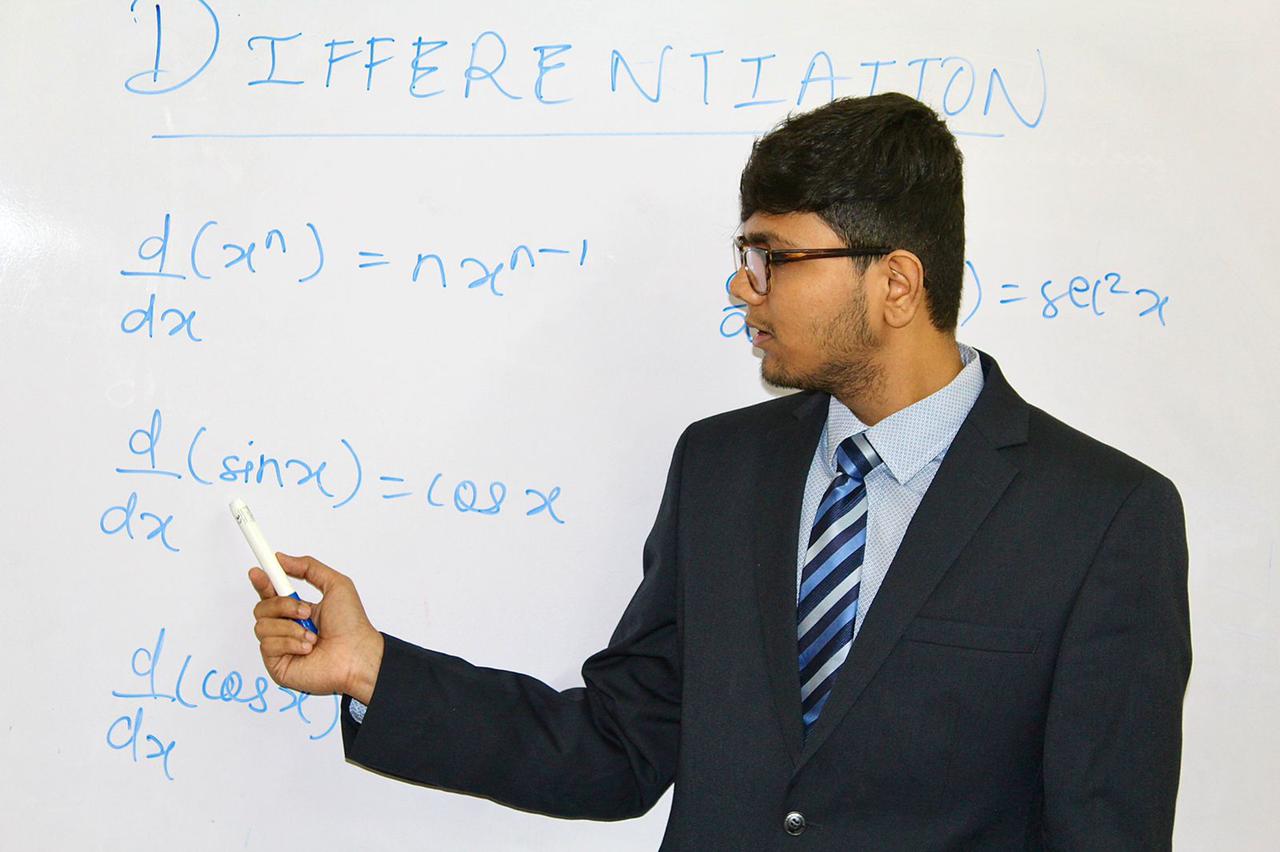 DIFFERENTIATION
d/dx (xⁿ) = nxⁿ⁻¹
) = sec²x
d/dx (sinx) = cosx
d/dx (cosx)